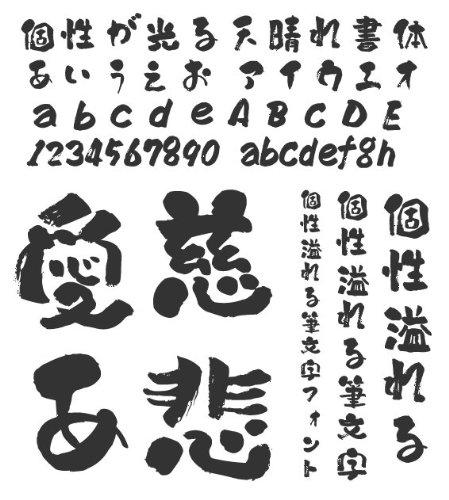 個性が光る天晴れ書体
あいうえお アイウエオ
abcde ABCDE
1234567890 abcdefgh
愛慈
あ悲
個性溢れる
個性溢れる筆文字
個性溢れる筆文字フォント